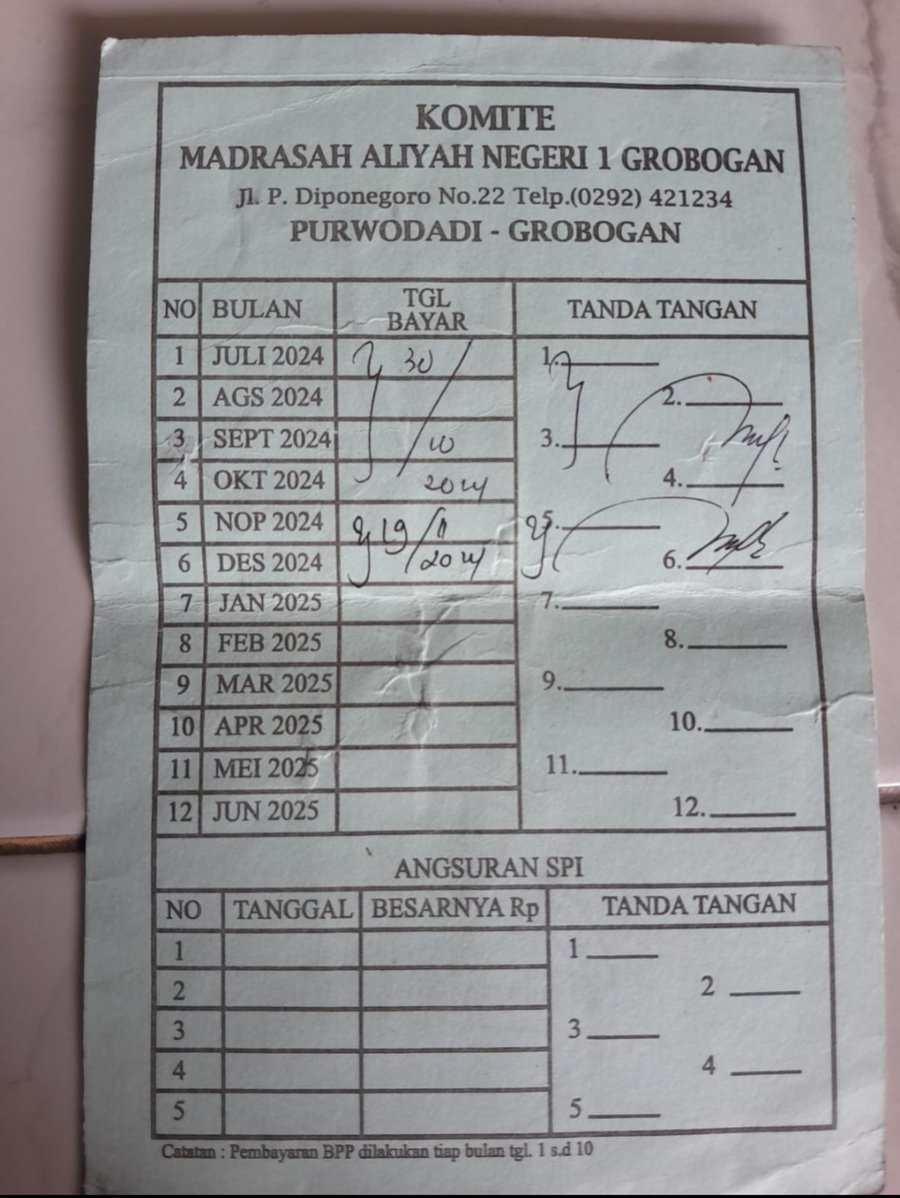 KOMITE
MADRASAH ALIYAH NEGERI 1 GROBOGAN
Jl. P. Diponegoro No.22 Telp.(0292) 421234
PURWODADI - GROBOGAN
NO BULAN TGL BAYAR TANDA TANGAN
1 JULI 2024 30/ 1.
2 AGS 2024 2.
3 SEPT 2024 10 3.
4 OKT 2024 2024 4.
5 NOP 2024 19/11 5.
6 DES 2024 2024 6.
7 JAN 2025 7.
8 FEB 2025 8.
9 MAR 2025 9.
10 APR 2025 10.
11 MEI 2025 11.
12 JUN 2025 12.
ANGSURAN SPI
NO TANGGAL BESARNYA Rp TANDA TANGAN
1 1
2 2
3 3
4 4
5 5
Catatan : Pembayaran BPP dilakukan tiap bulan tgl. 1 s.d 10